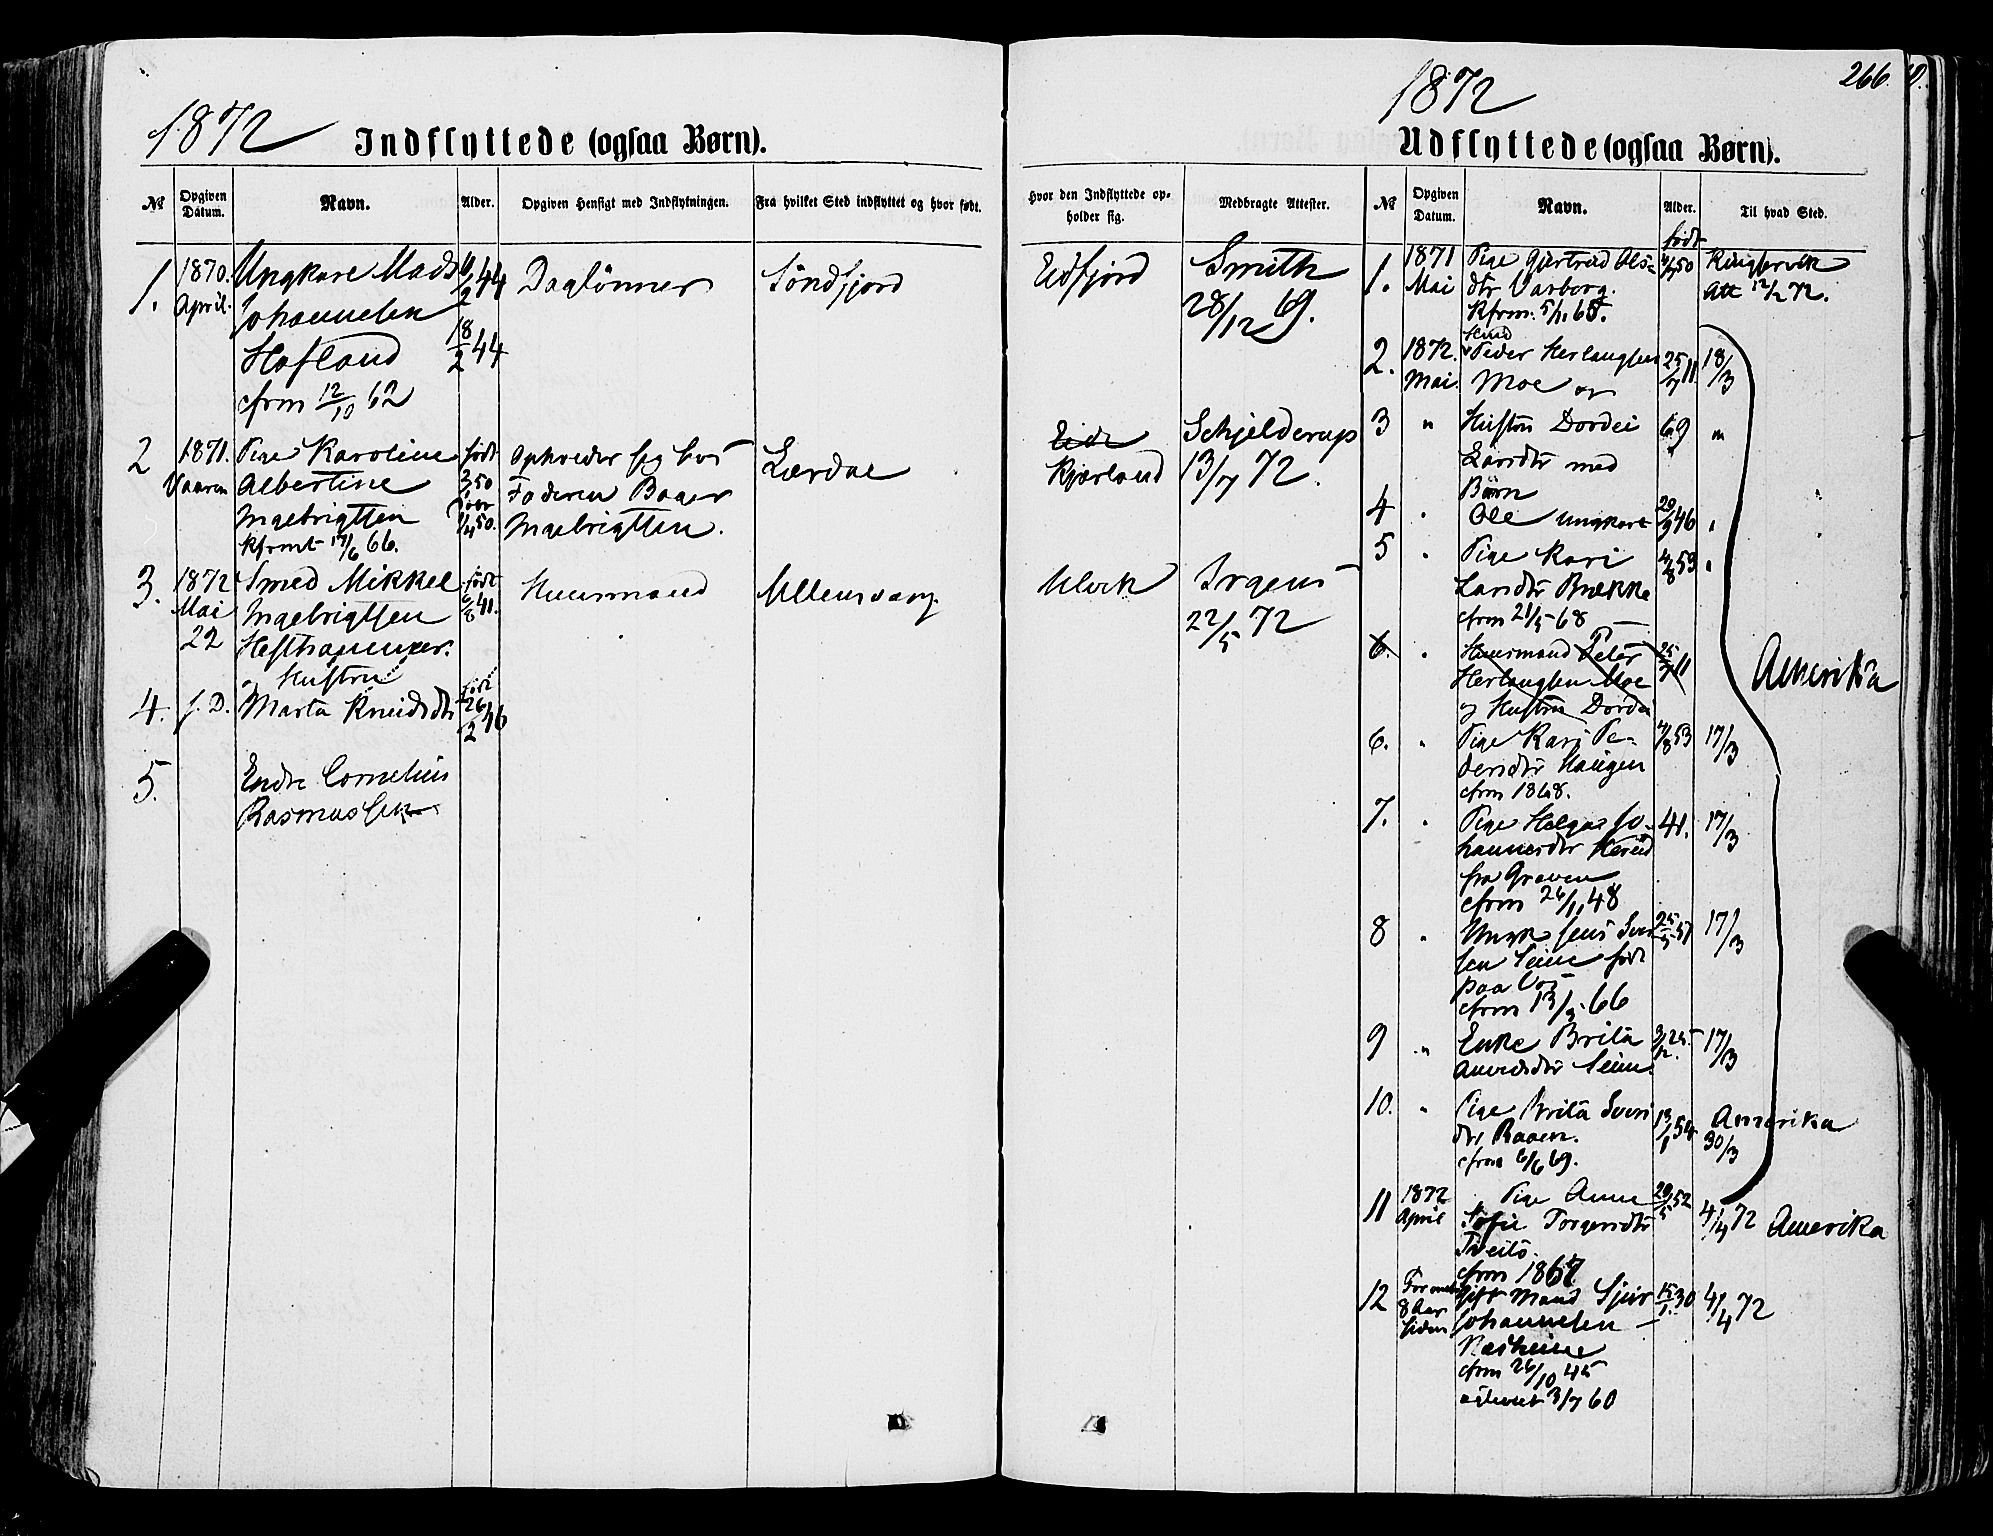 1872
Indflyttede (ogsaa Børn).
№
Opgiven Datum.
Navn.
Alder.
Opgiven Hensigt med Indflytningen.
Fra hvilket Sted indflyttet og hvor født.
1.
1870.
April.
Ungkare Mads
Johannesen
Hafland
cfrm 12/10 62
44
18/2 44
Daglönner
Söndfjord
2
1871.
Vaaren
Pige Karoline
Albertine
Ingebrigtsen
kfrmt 17/6 66.
født
50
50.
Opholder sig hos
Faderen Baaer
Ingebrigtsen.
Lærdal
3.
1872
Mai
22
Smed Mikkel
Ingebrigtsen
Hesthammer.
født
6/8 41.
Huusmand
Ullensvang
Hustru
4.
f. D.
Marta Knudsdtr
født
26/2 46
5.
Endre Cornelius
Rasmussen
266.
1872
Udflyttede (ogsaa Børn).
Hvor den Indflyttede opholder sig.
Medbragte Attester.
№
Opgiven Datum.
Navn.
Alder.
Til hvad Sted.
Eidfjord
Smith
28/12 69.
Eide
Kjærland
Schjelderup
13/7 72.
Ulvik
Irgens
22/5 72
født
1.
1871
Mai
Pige Gjertrud Ols=
dtr Varberg.
kfrm. 5/11 65.
50
Att 12/2 72.
2.
1872.
Mai
Huusmd
Peder Herlaugsen
Moe og
25/7 11
18/3
3
"
Hustru Dordei
Larsdtr med
69
"
Børn
4
"
Ole ungkarl
20/9 46
"
5
"
Pige Kari
Larsdtr Brekke
cfrm 21/5 68
4/8 53
"
6.
"
Huusmand Peter
Herlaugsen Moe
og Hustru Dordei
25/7 11
Amerika
6.
"
Pige Kari Pe-
dersdtr Haugen
cfrm 1868.
4/8 53
17/3
7.
"
Pige Helga Jo-
hannesdtr
fra Graven
cfrm 26/11 48
41.
17/3
8
"
Ungk Jens Sver
sen Seim født
paa Vos
cfrm 13/5 66
25/5 51
17/3
9
"
Enke Brita
Amundsdtr Seim.
25
17/3
10.
"
Pige Brita Sveri
dtr Raaen.
cfrm 6/6 69.
13/1 54
Amerika
30/3
11
1872
April
Pige Anna
Sofie Torgersdtr
Tveito.
cfrm 1867
20/5 52
4/4 72 Amerika
12
For omtr
8 Aar
siden
Gift Mand Sjur
Johannesen
cfrm 26/10 45
3/7 60
15/1 30
4/4 72